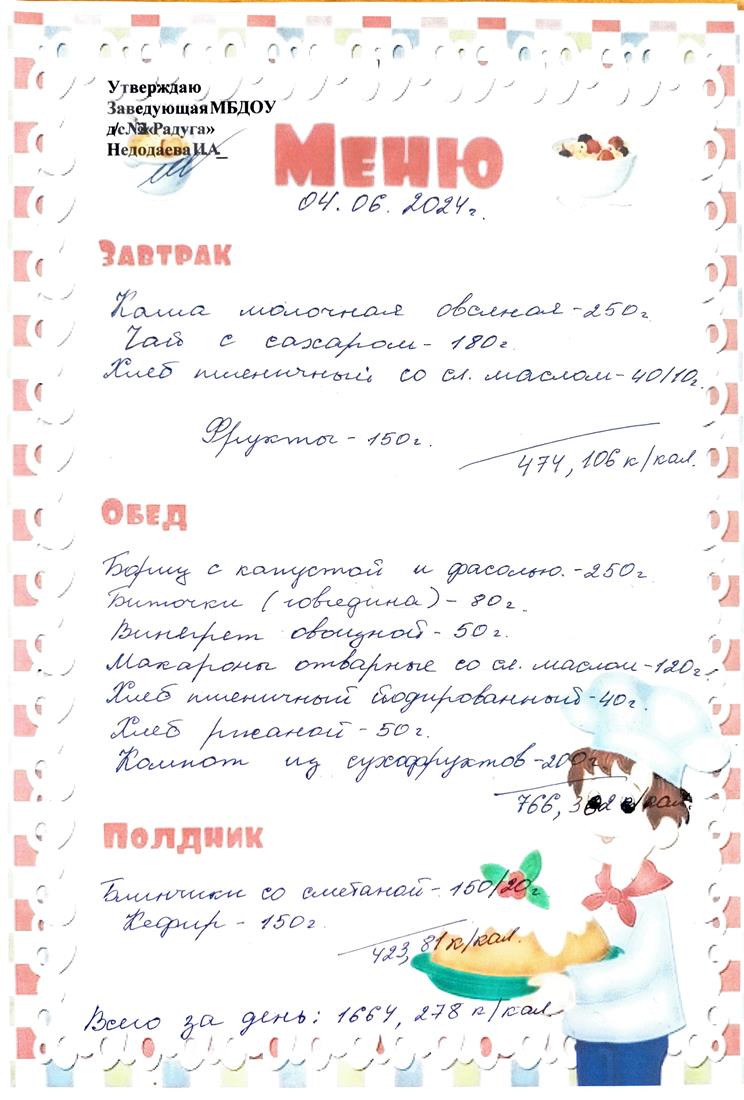 Утверждаю
Заведующая МБДОУ
д/с «Радуга»
Недодаева И.А._
Меню
04.06.2024г.
Завтрак
Каша молочная овсяная - 250г.
Чай с сахаром - 180г.
Хлеб пшеничный со сл. маслом - 40/10г.
Фрукты - 150г.
474, 106 к/кал.
Обед
Борщ с капустой и фасолью. - 250г.
Биточки (говядина) - 80г.
Винегрет овощной - 50г.
Макароны отварные со сл. маслом - 120г.
Хлеб пшеничный йодированный - 40г.
Хлеб ржаной - 50г.
Компот из сухофруктов - 200г.
766, к/кал.
Полдник
Блинчики со сметаной - 150/20г
Кефир - 150г.
423, 81 к/кал.
Всего за день: 1664, 278 к/кал.